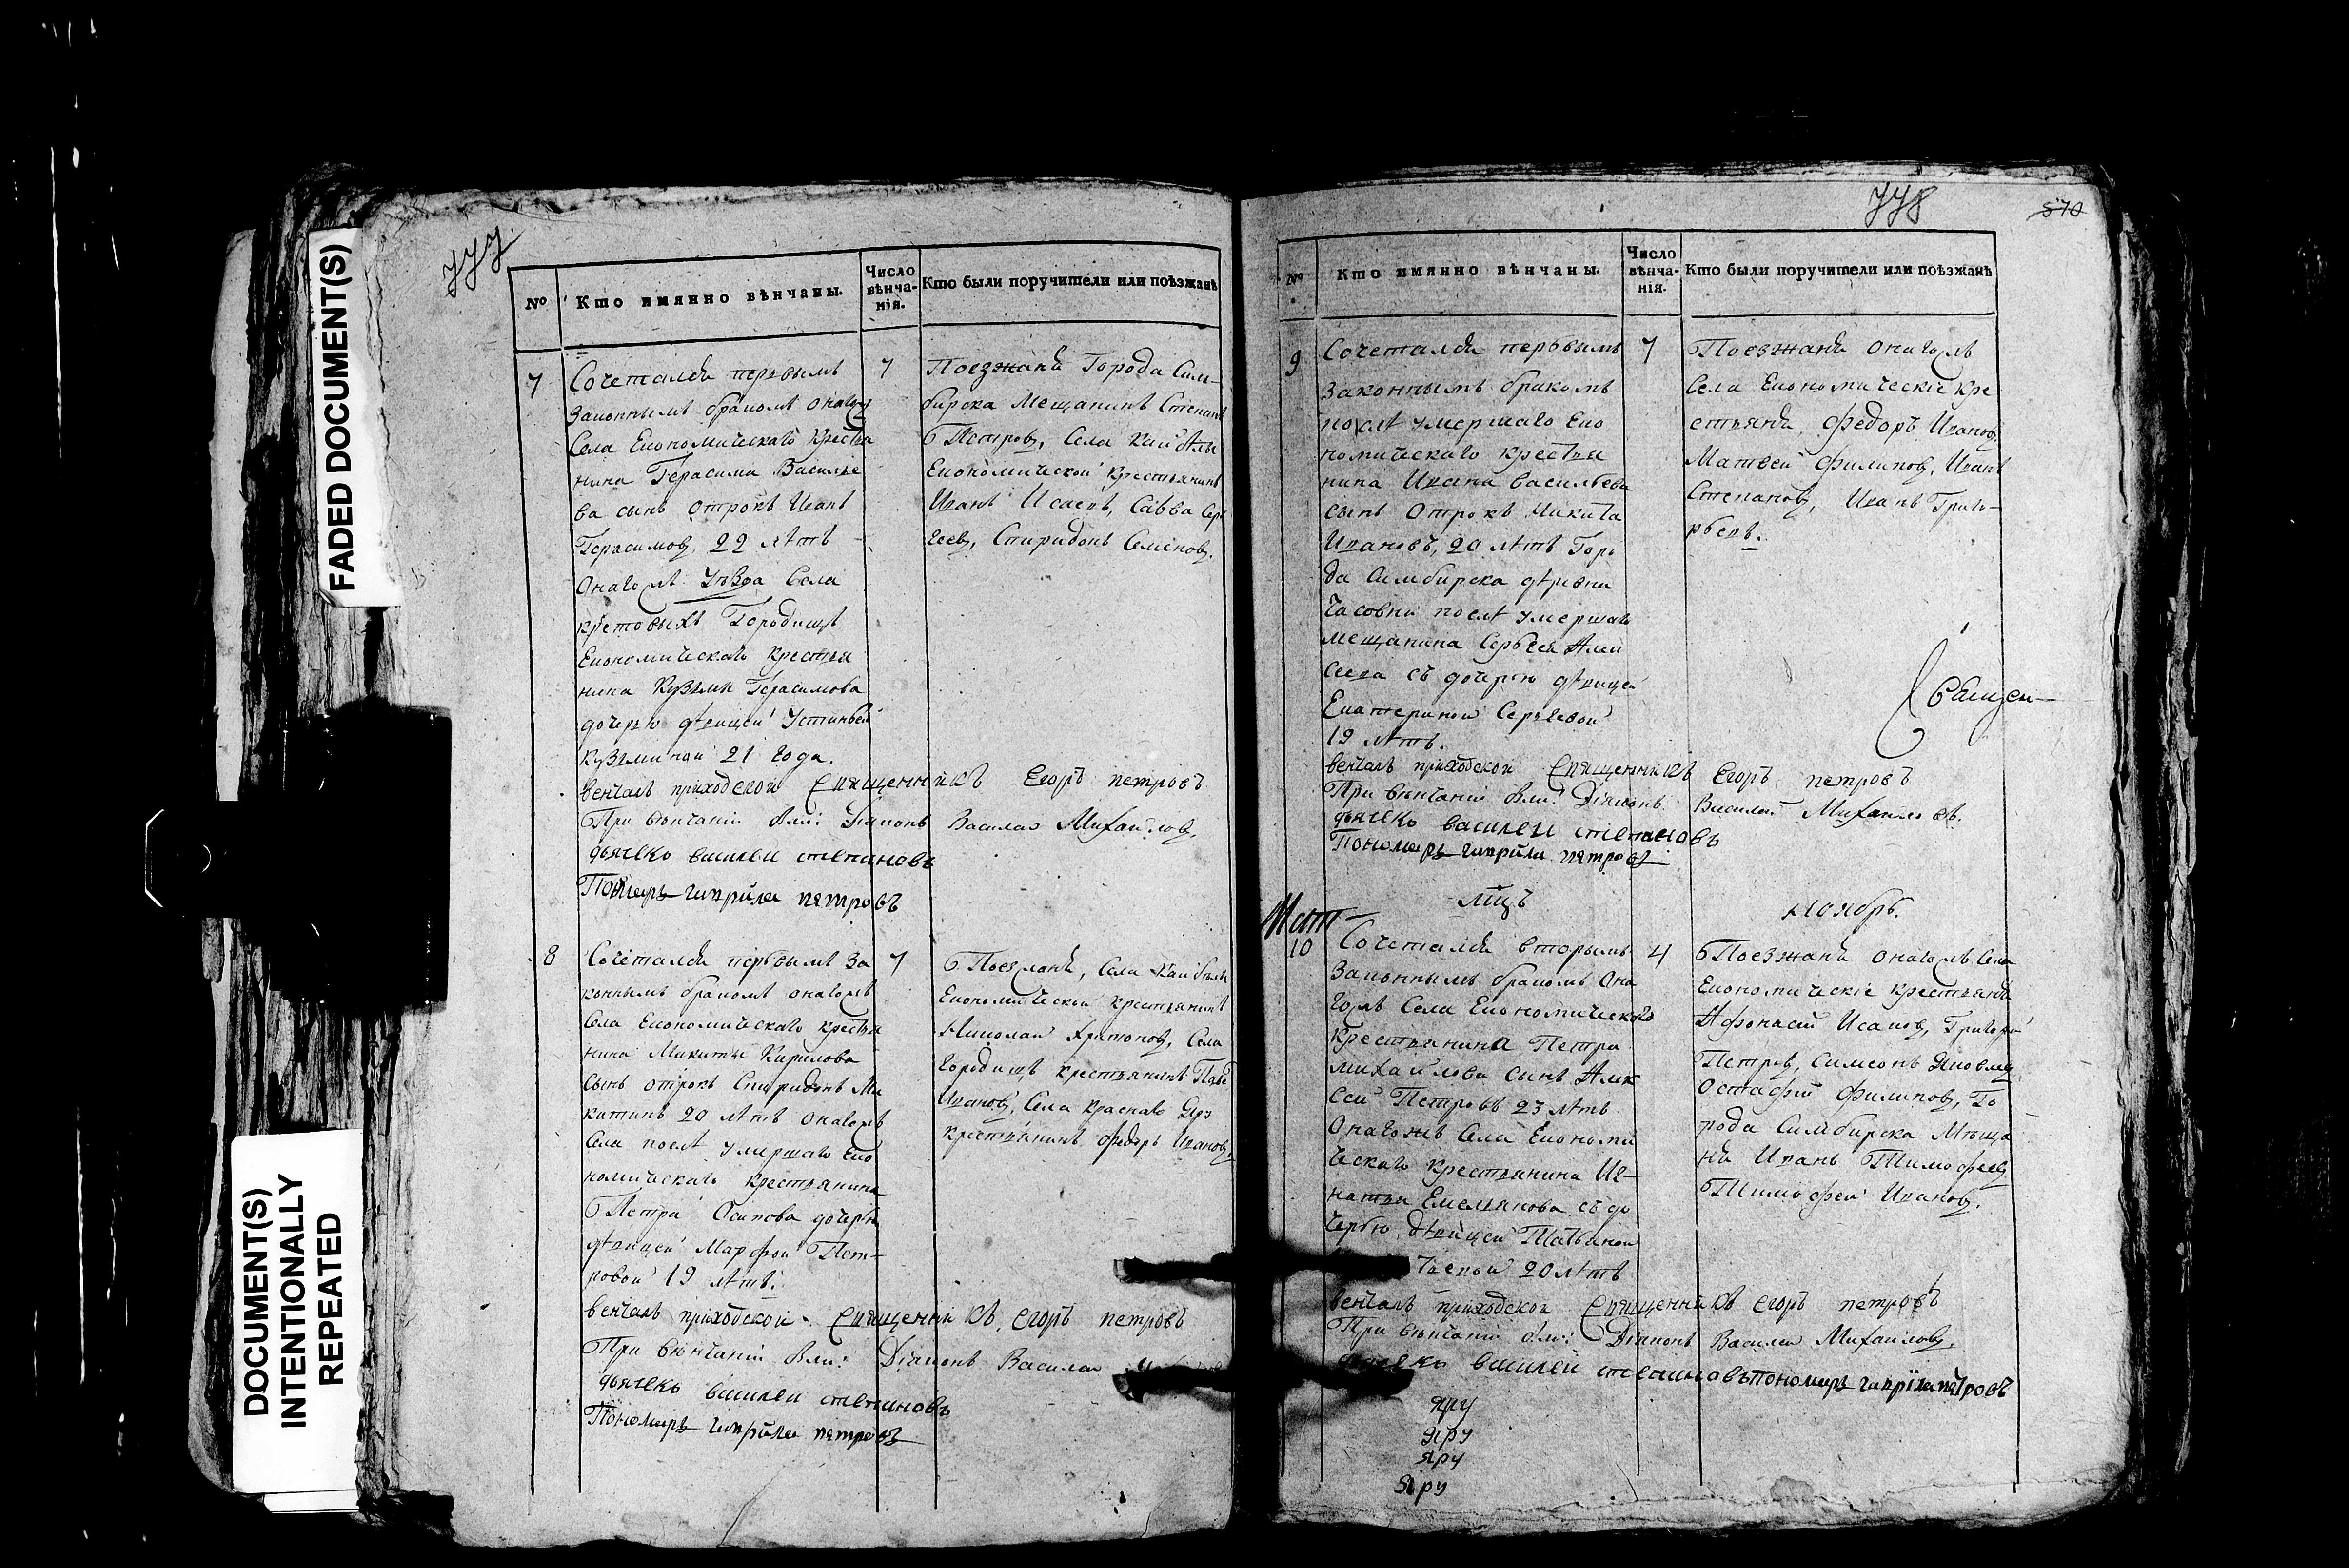 FADED DOCUMENT(S)
DOCUMENT(S)
INTENTIONALLY
REPEATED
№
Кто имянно вѣнчаны.
Число
вѣнча-
нія.
Кто были поручители или поѣзжанѣ
7
Сочетался первымъ
законнымъ бракомъ онагожъ
села Економическаго крестья
нина Герасима Василье
ва сынъ отрокъ Иванъ
Герасимовъ, 22 лѣтъ
онагожъ уѣзда села
Городищъ
Економическаго крестья
нина Кузмы Герасимова
дочерью дѣвицей Устиньей
Кузминой 21 года.
7
Поезжанѣ Города Сим-
бирска Мещанинъ Степанъ
Петровъ, села
Економической крестьянинъ
Иванъ Исаевъ, Савва Сер
геевъ, Спиридонъ Семеновъ.
венчалъ приходской священникъ Егоръ петровъ
При венчаніи были: Діаконъ Василий Михайловъ.
дьячекъ василеи степановъ
Пономарь гаврила петровъ
8
Сочетался первымъ за
коннымъ бракомъ онагожъ
села Економическаго крестья
нина Микиты Кирилова
сынъ отрокъ Спиридонъ Ми
китинъ 20 лѣтъ онагожъ
села послѣ умершаго Еко
номическаго крестьянина
Петра Осипова дочерью
дѣвицей Марфой Пет-
ровой 19 лѣтъ.
7
Поезжанѣ, села
Економической крестьянинъ
Николай села
Городищъ крестьянинъ
Ивановъ, села Краснаго Яру
крестьянинъ Федоръ Ивановъ.
венчалъ приходской священникъ, Егоръ петровъ
При венчаніи были: Діаконъ Василеи
дьячекъ василеи степановъ
Пономарь гаврила петровъ
570
№
Кто имянно вѣнчаны.
Число
вѣнча-
нія.
Кто были поручители или поѣзжанѣ
9
Сочетался первымъ
законнымъ бракомъ
послѣ умершаго Еко
номическаго крестья
нина Ивана Васильева
сынъ отрокъ Никита
Ивановъ, 20 лѣтъ Горо
да Симбирска дѣревни
Часовни послѣ умершаго
мещанина Сергѣя Алек
сеева съ дочерью дѣвицей
Екатериной Сергеевой
19 лѣтъ.
7
Поезжанѣ онагожъ
села Економическіе кре
стьянѣ, Федоръ Ивановъ,
Матвей Филиповъ, Иванъ
Степановъ, Иванъ Григо-
рьевъ.
Священ-
венчалъ приходской священникъ Егоръ петровъ
При венчаніи были: Діаконъ Василей Михайловъ.
дьячекъ василеи степановъ
Пономарь гаврила петровъ
мцъ Ноябрь.
10
Сочетался вторымъ
законнымъ бракомъ она
гожъ села Економическаго
крестьянина Петра
Михайлова сынъ Алек
сей Петровъ 23 лѣтъ
онагожъ села Економи
ческаго крестьянина Иг-
натья Емельянова съ до
черью дѣвицей Татьяной
20 лѣтъ
4
Поезжанѣ онагожъ села
Економическіе крестьянѣ
Афонасій Исаковъ, Григорій
Петровъ, Симеонъ Яковлевъ,
Остафій Филиповъ, Го
рода Симбирска Мѣща
нѣ Иванъ Тимофеевъ
Тимофей Ивановъ.
венчалъ приходской священникъ Егоръ петровъ
При венчаніи были: Діаконъ Василеи Михайловъ.
дьячекъ василей степановъ пономарь гаврила петровъ
яру
яру
яру
яру